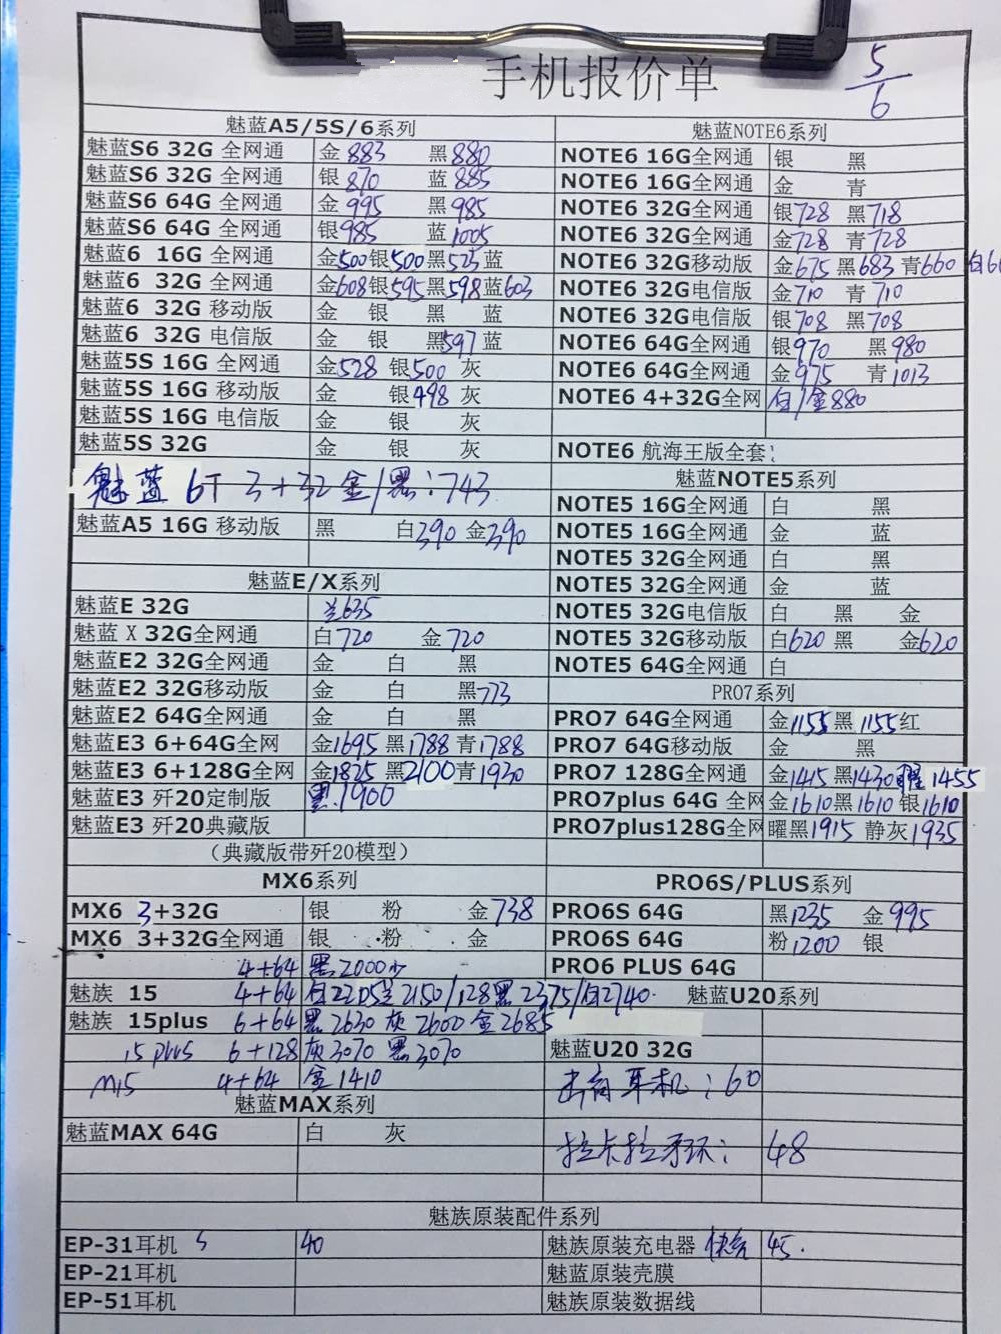 手机报价单
5/6
魅蓝A5/5S/6系列
魅蓝S6 32G 全网通 金 883 黑 880
魅蓝S6 32G 全网通 银 870 蓝 885
魅蓝S6 64G 全网通 金 995 黑 985
魅蓝S6 64G 全网通 银 985 蓝 1005
魅蓝6 16G 全网通 金500 银500 黑525 蓝
魅蓝6 32G 全网通 金608 银595 黑598 蓝603
魅蓝6 32G 移动版 金 银 黑 蓝
魅蓝6 32G 电信版 金 银 黑597 蓝
魅蓝5S 16G 全网通 金528 银500 灰
魅蓝5S 16G 移动版 金 银498 灰
魅蓝5S 16G 电信版 金 银 灰
魅蓝5S 32G 金 银 灰
魅蓝 6T 3+32 金/黑:743
魅蓝A5 16G 移动版 黑 白390 金390
魅蓝E/X系列
魅蓝E 32G 兰635
魅蓝 X 32G全网通 白720 金720
魅蓝E2 32G全网通 金 白 黑
魅蓝E2 32G移动版 金 白 黑773
魅蓝E2 64G全网通 金 白 黑
魅蓝E3 6+64G全网 金1695 黑1788 青1788
魅蓝E3 6+128G全网 金1825 黑2100 青1930
魅蓝E3 歼20定制版 黑.1900
魅蓝E3 歼20典藏版
（典藏版带歼20模型）
MX6系列
MX6 3+32G 银 粉 金738
MX6 3+32G全网通 银 粉 金
4+64 黑2000少
魅族 15 4+64 白2205兰2150/128黑2375/白2740.
魅族 15plus 6+64 黑2630 灰2600 金2685
15 plus 6+128 灰3070 黑3070
M15 4+64 金1410
魅蓝MAX系列
魅蓝MAX 64G 白 灰
魅蓝NOTE6系列
NOTE6 16G全网通 银 黑
NOTE6 16G全网通 金 青
NOTE6 32G全网通 银728 黑718
NOTE6 32G全网通 金728 青728
NOTE6 32G移动版 金675 黑683 青660
NOTE6 32G电信版 金710 青710
NOTE6 32G电信版 银708 黑708
NOTE6 64G全网通 银970 黑980
NOTE6 64G全网通 金975 青1013
NOTE6 4+32G全网 白/金880
NOTE6 航海王版全套:
魅蓝NOTE5系列
NOTE5 16G全网通 白 黑
NOTE5 16G全网通 金 蓝
NOTE5 32G全网通 白 黑
NOTE5 32G全网通 金 蓝
NOTE5 32G电信版 白 黑 金
NOTE5 32G移动版 白620 黑 金620
NOTE5 64G全网通 白
PRO7系列
PRO7 64G全网通 金1155 黑1155 红
PRO7 64G移动版 金 黑
PRO7 128G全网通 金1415 黑1430 曜1455
PRO7plus 64G 全网 金1610 黑1610 银1610
PRO7plus128G全网 曜黑1915 静灰1935
PRO6S/PLUS系列
PRO6S 64G 黑1235 金995
PRO6S 64G 粉1200 银
PRO6 PLUS 64G
魅蓝U20系列
魅蓝U20 32G
耳机:60
拉卡拉手环: 48
魅族原装配件系列
EP-31耳机 40
EP-21耳机
EP-51耳机
魅族原装充电器 快充 45.
魅蓝原装壳膜
魅族原装数据线